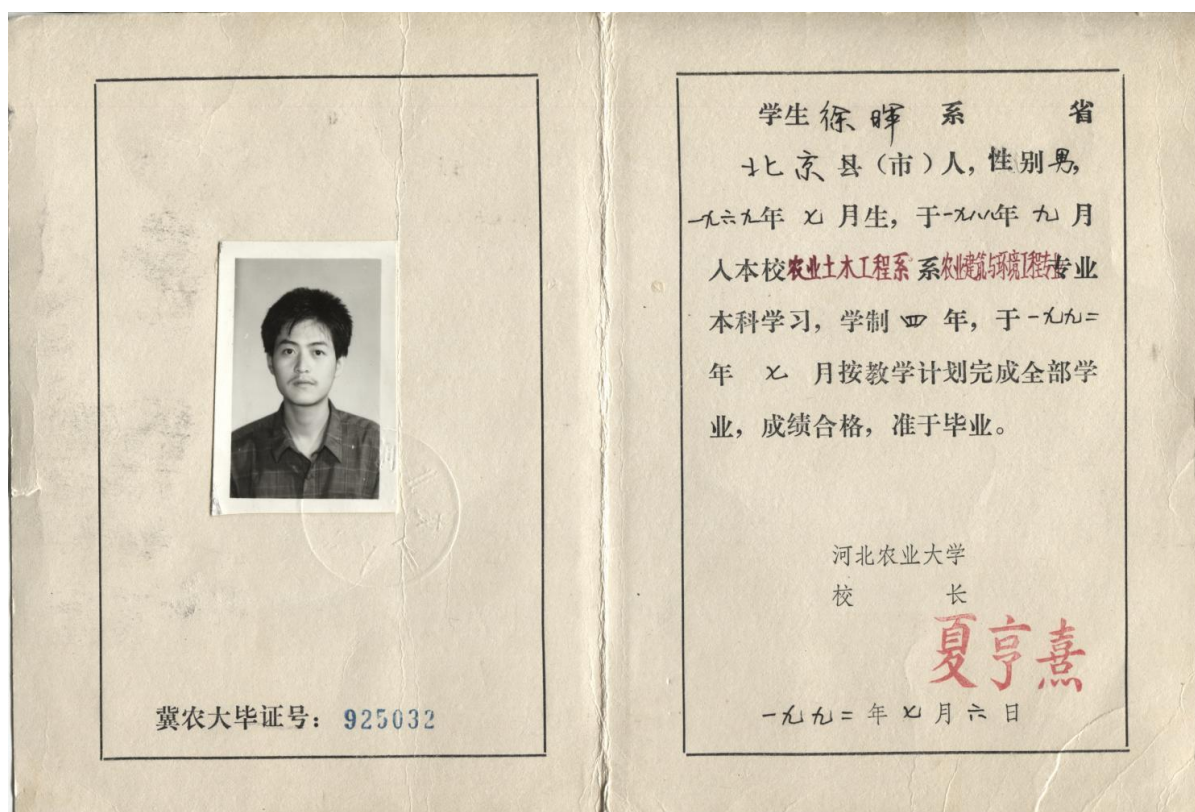 冀农大毕证号：925032
学生徐晖系 省
北京县（市）人，性别男，
一九六九年七月生，于一九八八年九月
入本校农业土木工程系系农业建筑与环境工程专业
本科学习，学制四年，于一九九二
年七月按教学计划完成全部学
业，成绩合格，准于毕业。
河北农业大学
校 长
夏亨熹
一九九二年七月六日